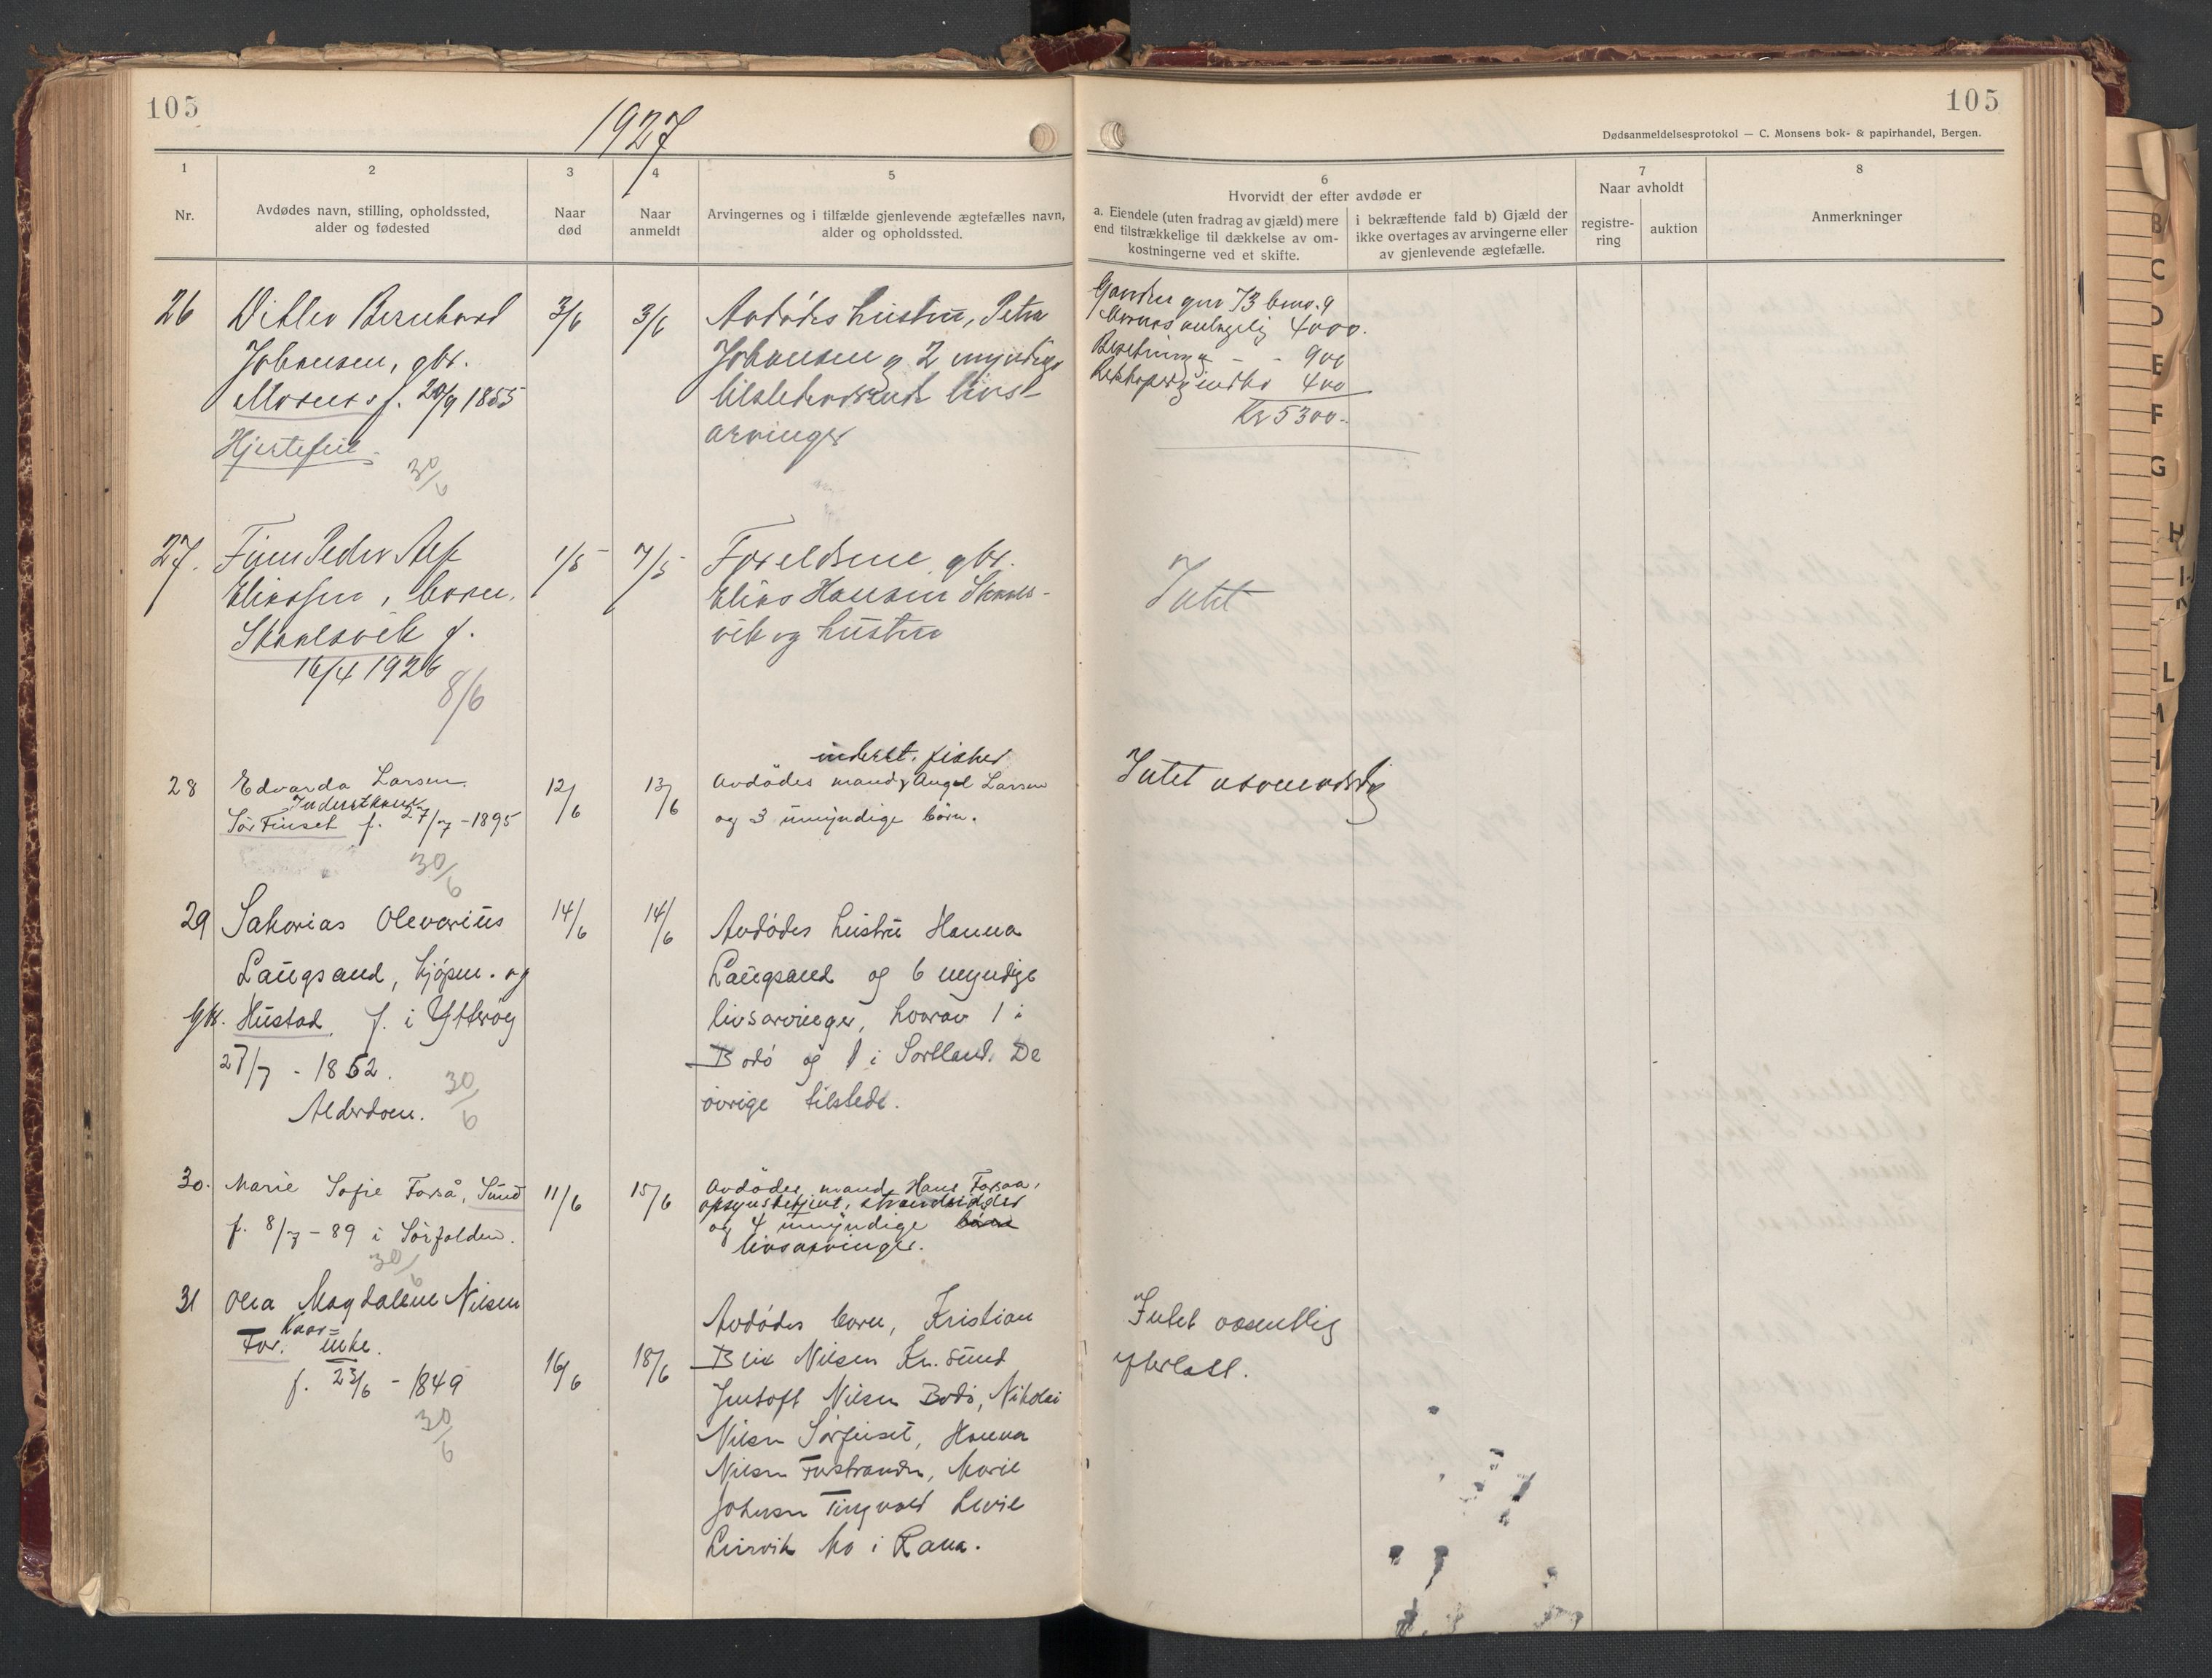 105
1927
105
Dødsanmeldelsesprotokol — C. Monsens bok- & papirhandel, Bergen.
1
2
3
4
5
6
7
8
Nr.
Avdødes navn, stilling, opholdssted,
alder og fødested
Naar
død
Naar
anmeldt
Arvingernes og i tilfælde gjenlevende ægtefælles navn,
alder og opholdssted.
Hvorvidt der efter avdøde er
a. Eiendele (uten fradrag av gjæld) mere
end tilstrækkelige til dækkelse av om-
kostningerne ved et skifte.
i bekræftende fald b) Gjæld der
ikke overtages av arvingerne eller
av gjenlevende ægtefælle.
Naar avholdt
registre-
ring
auktion
Anmerkninger
26
Ditlev Bernhard
Johansen, gbr.
Mornes f. 20/9 1855
Hjertefeil
30/6
3/6
3/6
Avdødes hustru, Petra
Johansen og 2 myndige
tilstedeværende livs-
arvinger
Gaarden gnr 73 bnr. 9
Mornes antagelig 4000.
Besetning - - 900
Redskaper og indbo 400
Kr 5300.-
27.
Finn Peder Alf
Eliassen, barn,
Skaulsvik f.
16/4 1926
8/6
1/5
7/5
Foreldrene gbr.
Elias Hansen Skauls-
vik og hustru
Intet
28
Edvarda Larsen
Inderstkone
Sør Finset f. 27/7 - 1895
30/6
12/6
13/6
inderst, fisker
Avdødes mand Angel Larsen
og 3 umyndige børn.
Intet nevneverdig
29
Sakarias Olevarius
Laugsand, kjøpm. og
gbr. Hustad, f. i Ytterøy
27/7 - 1852.
Alderdom.
30/6
14/6
14/6
Avdødes hustru Hanna
Laugsand og 6 myndige
livsarvinger, hvorav 1 i
Bodø og 1 i Sortland. De
øvrige tilstede.
30.
Marie Sofie Forså, Sund
f. 8/7 - 89 i Sørfolden.
30/6
11/6
15/6
Avdødes mand Hans Forsaa,
opsynsbetjent, strandsidder
og 4 umyndige børn
livsarvinger.
31
Olea Magdalene Nilsen
Kaar-
For. enke.
f. 23/6 - 1849
30/6
16/6
18/6
Avdødes barn, Kristian
Blix Nilsen Kr. sund
Jentoft Nilsen Bodø, Nikolai
Nilsen Sørfinset, Hanna
Nilsen Forstranden, Marie
Johnsen Tingvold Levie
Leirvik Mo i Rana.
Intet væsentlig
efterlatt.
B
C
D
E
F
G
H
L